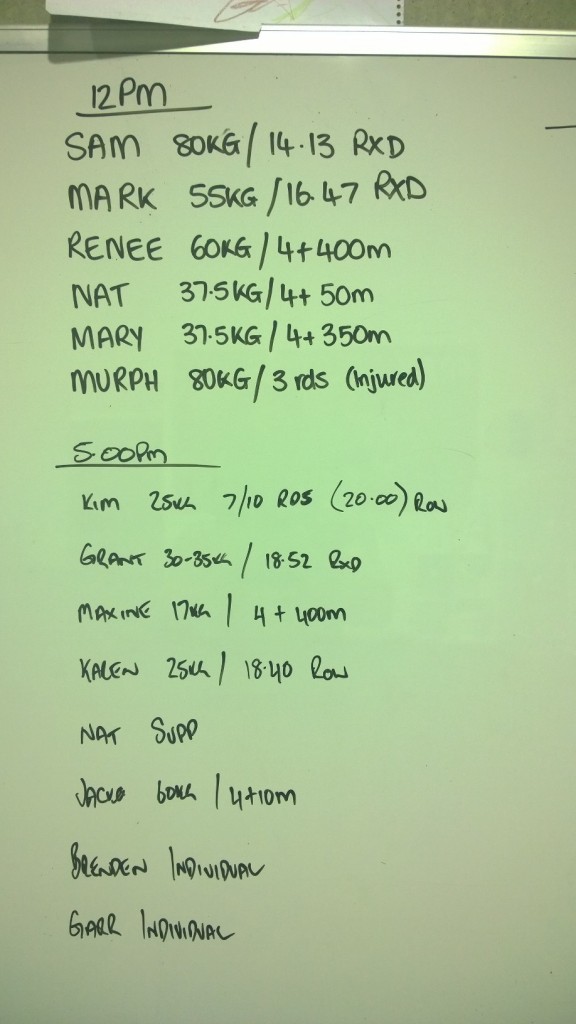 12PM
SAM 80KG / 14.13 RXD
MARK 55KG / 16.47 RXD
RENEE 60KG / 4+400m
NAT 37.5KG / 4+ 50m
MARY 37.5KG / 4+ 350m
MURPH 80KG / 3 rds (Injured)
5.00Pm
KIM 25KG 7/10 RDS (20.00) ROW
GRANT 30-35KG / 18.52 RXD
MAXINE 17KG / 4 + 400m
KALEN 25KG / 18.40 ROW
NAT SUPP
60KG / 4+10m
BRENDEN INDIVIDUAL
GARR INDIVIDUAL